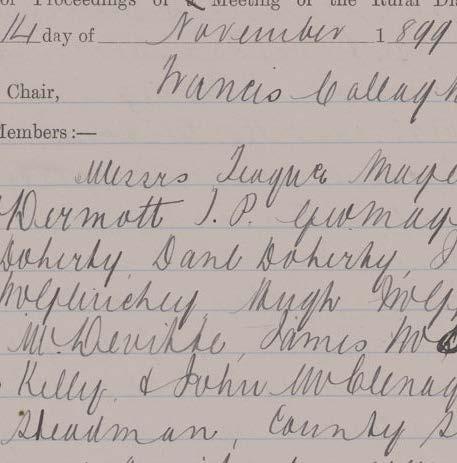 of Proceedings of a Meeting of the Rural Dis
14 day of November 1899
Chair, Francis Callagh
Members :—
Messrs Teague Mage
Dermott J. P. Geo Mag
Doherty Danl Doherty, J
McGlinchey, Hugh McGl
McDevitte, James Mc
Kelly & John McClenag
Steadman, County S